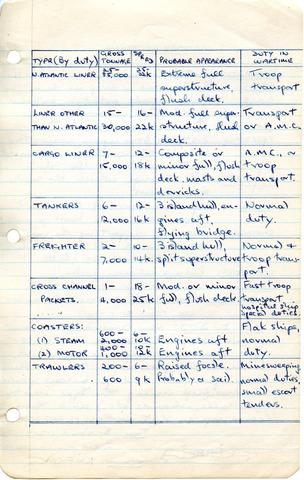 TYPE (By duty) GROSS TONNAGE SPEED PROBABLE APPEARANCE DUTY IN WARTIME
N. ATLANTIC LINER 25- 25- Extreme full Troop
85,000 32k superstructure, transport
flush deck.
LINER OTHER 15- 16- Mod. full super- Transport
THAN N. ATLANTIC 30,000 22k structure, flush or A.M.C.
deck.
CARGO LINER 7- 12- Composite or A.M.C., or
15,000 18k minor full, flush troop
deck. masts and transport.
derricks.
TANKERS 6- 12- 3 island hull, en- Normal
12,000 16k gines aft, duty.
flying bridge.
FREIGHTER 2- 10- 3 island hull, Normal &
7,000 14k. split superstructure troop trans-
port.
CROSS CHANNEL 1- 18- Mod. or minor Fast troop
PACKETS. 4,000 25k full, flush deck. transport
hospital ship
special duties.
COASTERS: 600- 6- Flak ships,
(1) STEAM 2,000 10k Engines aft normal
400- 10-
(2) MOTOR 1,000 12k Engines aft duty.
TRAWLERS 200- 6- Raised focsle. Minesweeping
600 9k Probably a sail. normal duties,
small escort
tenders.